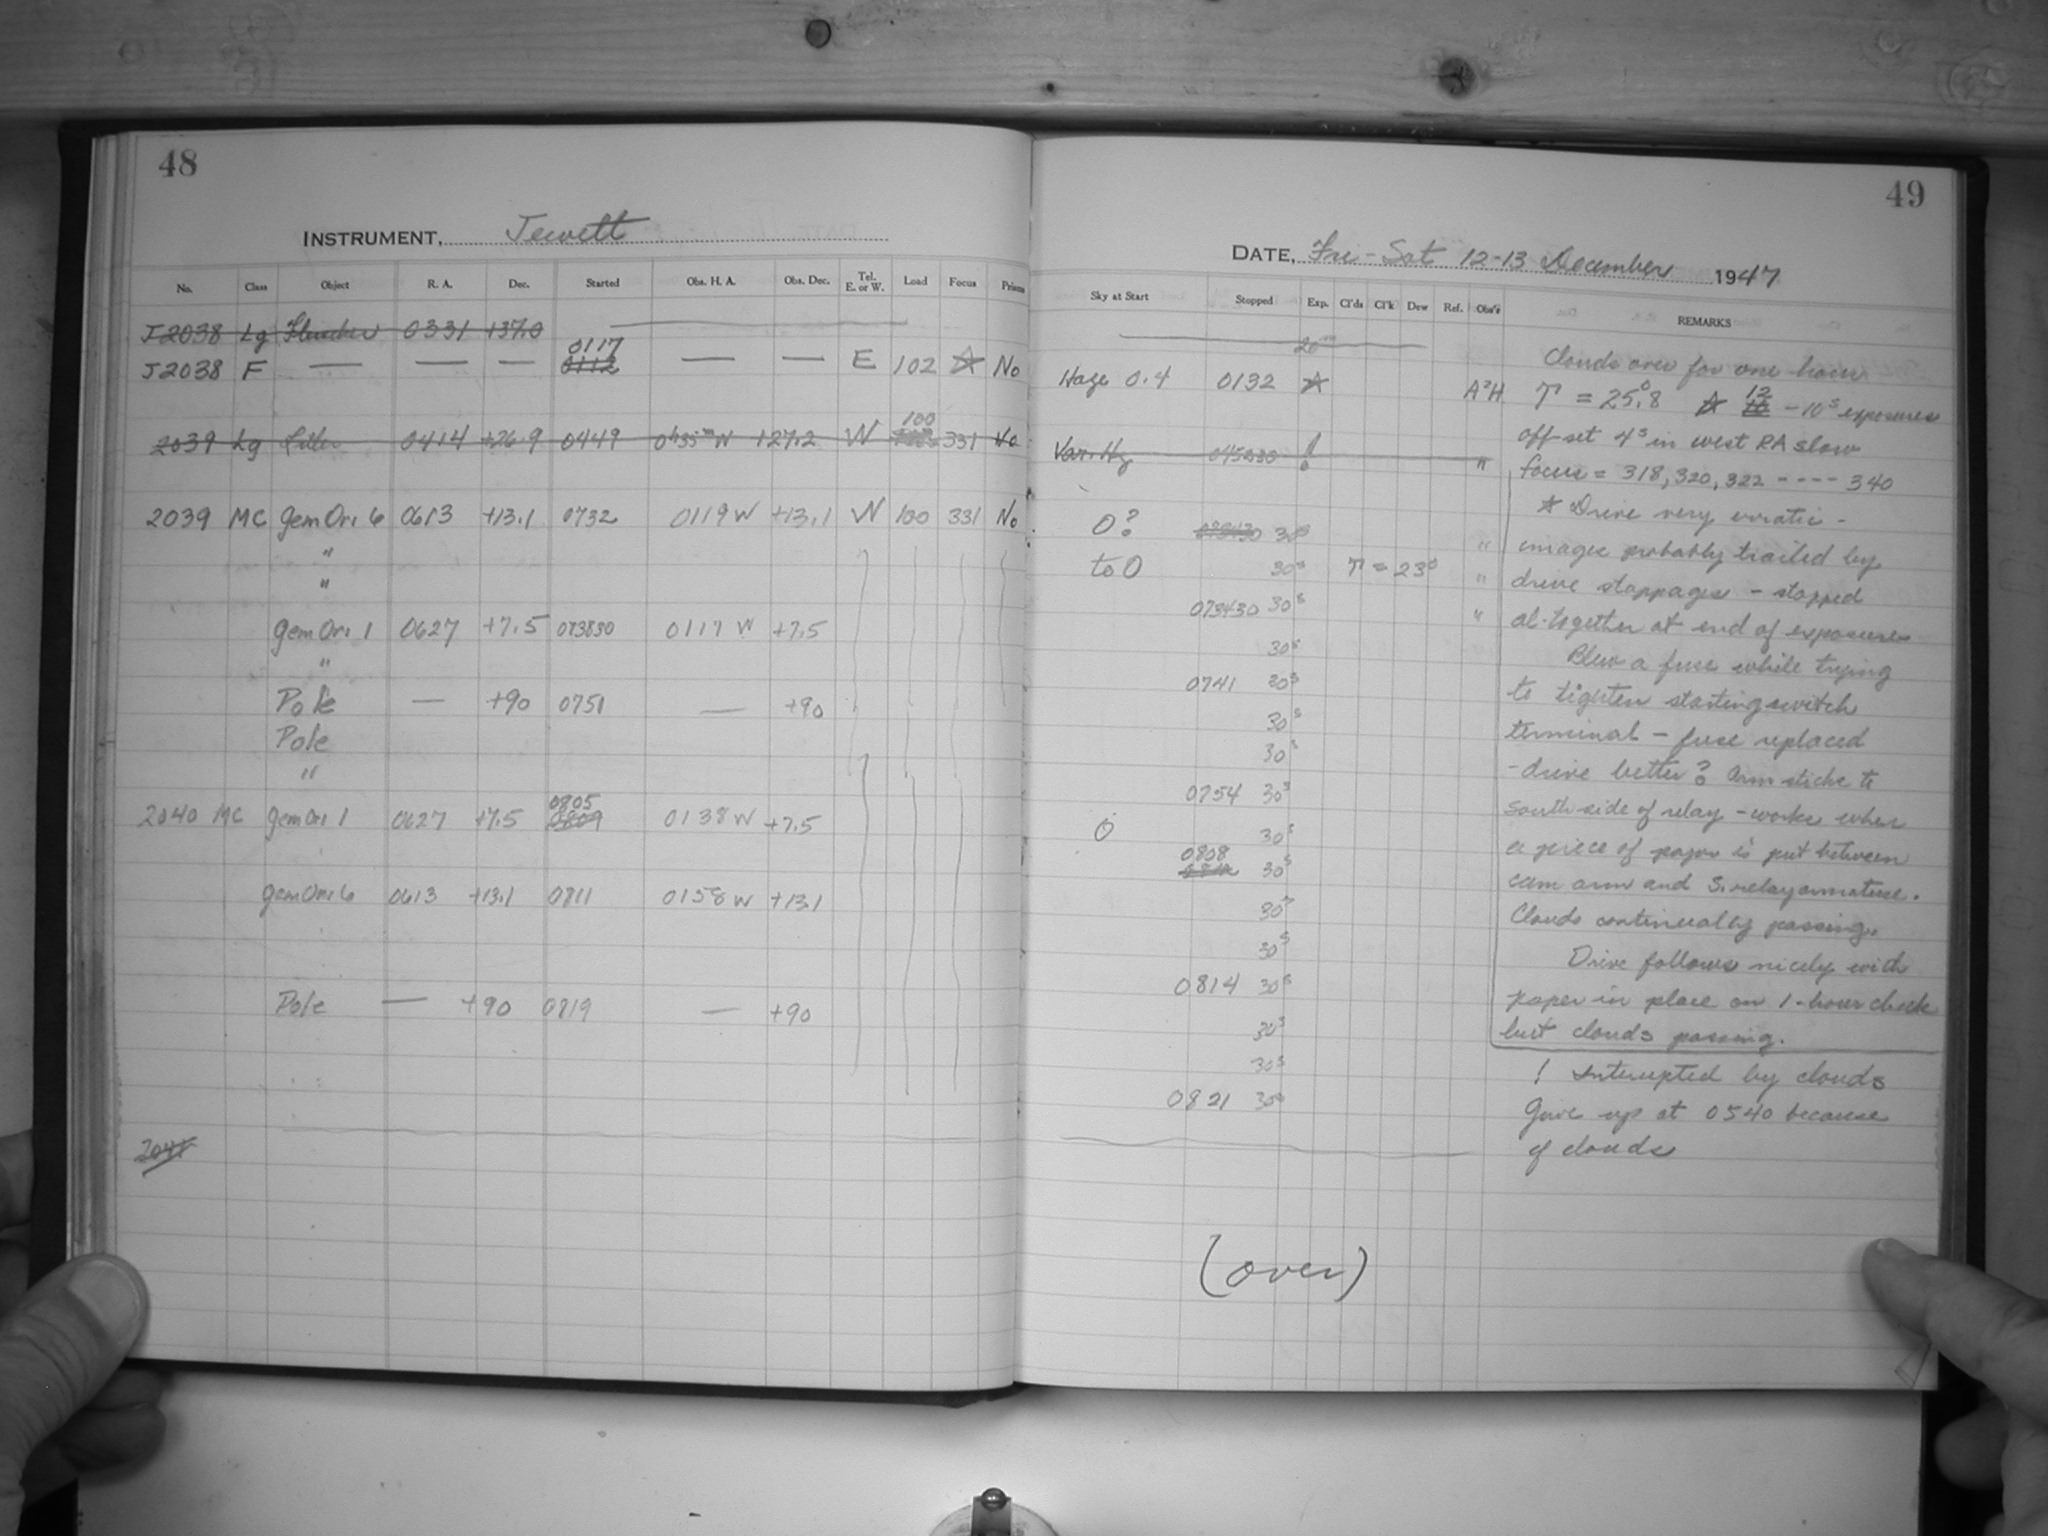 48
INSTRUMENT, Jewett
No. Class Object R. A. Dec. Started Obs. H. A. Obs. Dec. Tel. E. or W. Load Focus Prisms
J2038 Lg 0331 +37.0
0117
J2038 F — — — 0112 — — E 102 ☆ No
100
2039 Lg 0414 +26.9 0449 0h35m W +27.2 W 331 No
2039 MC Gem Ori 6 0613 +13.1 0732 0119 W +13.1 W 100 331 No
"
"
Gem Ori 1 0627 +7.5 073830 0117 W +7.5
"
Pole — +90 0751 — +90
Pole
"
0805
2040 MC Gem Ori 1 0627 +7.5 0809 0138 W +7.5
Gem Ori 6 0613 +13.1 0811 0158 W +13.1
Pole — +90 0819 — +90
2041
49
DATE, Fri - Sat 12-13 December 1947
Sky at Start Stopped Exp. Cl'ds Cl'k Dew Ref. Obs'r REMARKS
20m
Haze 0.4 0132 ☆ A²H
Var. Hz 045030 ! "
0? 30s "
to 0 30s T = 23° "
073430 30s "
30s
0741 30s
30s
30s
0754 30s
0 30s
0808
30s
30s
30s
0814 30s
30s
30s
0821 30s
Clouds over for one hour
T = 25.°8 ☆ 12 - 10s exposures
off set 4s in west RA slow
focus = 318, 320, 322 - - - - 340
* Drive very erratic -
images probably trailed by
drive stoppages - stopped
al-together at end of exposures
Blew a fuse while trying
to tighten starting switch
terminal - fuse replaced
- drive better? Arm sticks to
south side of relay - works when
a piece of paper is put between
cam arm and S. relay armature.
Clouds continually passing.
Drive follows nicely with
paper in place on 1-hour check
but clouds passing.
! Interrupted by clouds
Gave up at 0540 because
of clouds
(over)